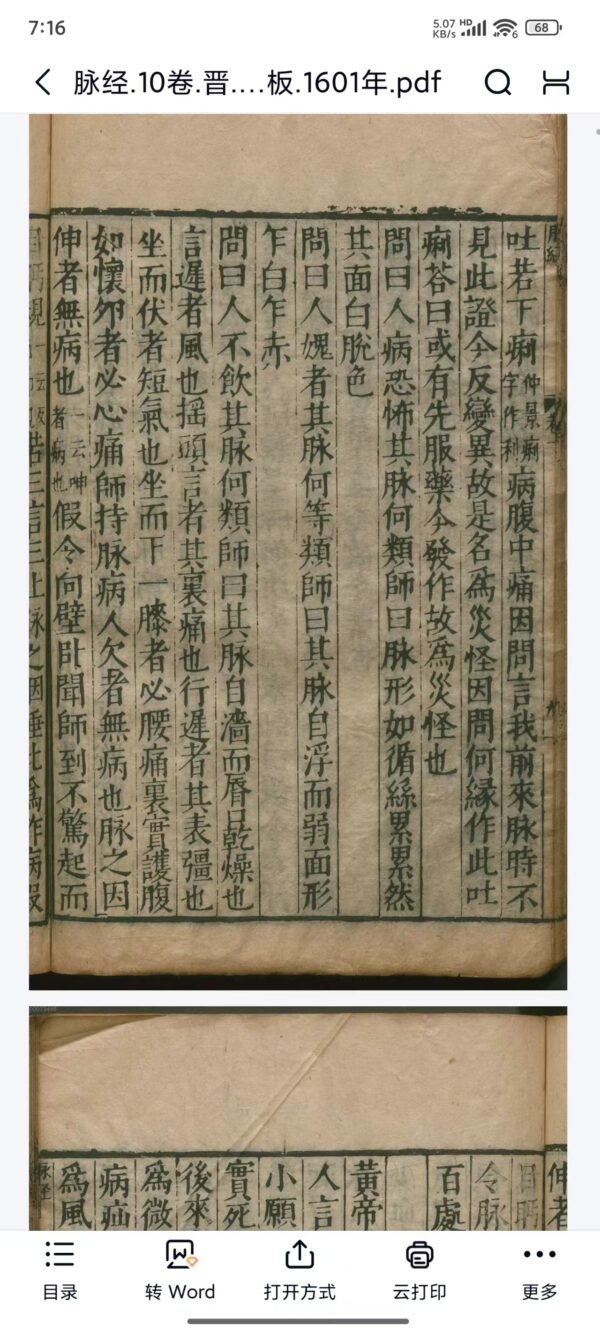 7:16
5.07 KB/s HD 6 68
脉经.10卷.晋....板.1601年.pdf
吐若下痢仲景痢字作利病腹中痛因問言我前來脉時不
見此證今反變異故是名爲災怪因問何縁作此吐
痢荅曰或有先服藥今發作故爲災怪也
問曰人病恐怖其脉何類師曰脉形如循絲累累然
其面白脫色
問曰人媿者其脉何等類師曰其脉自浮而弱面形
乍白乍赤
問曰人不飲其脉何類師曰其脉自濇而脣口乾燥也
言遲者風也揺頭言者其裏痛也行遲者其表彊也
坐而伏者短氣也坐而下一膝者必腰痛裏實護腹
如懷夘者必心痛師持脉病人欠者無病也脉之因
伸者無病也一云呻者病也假令向壁卧聞師到不驚起而
伸者
目眄
令脉
百處
黃帝
人言
小願
實死
後來
爲微
病疝
爲風
目录
转 Word
打开方式
云打印
更多